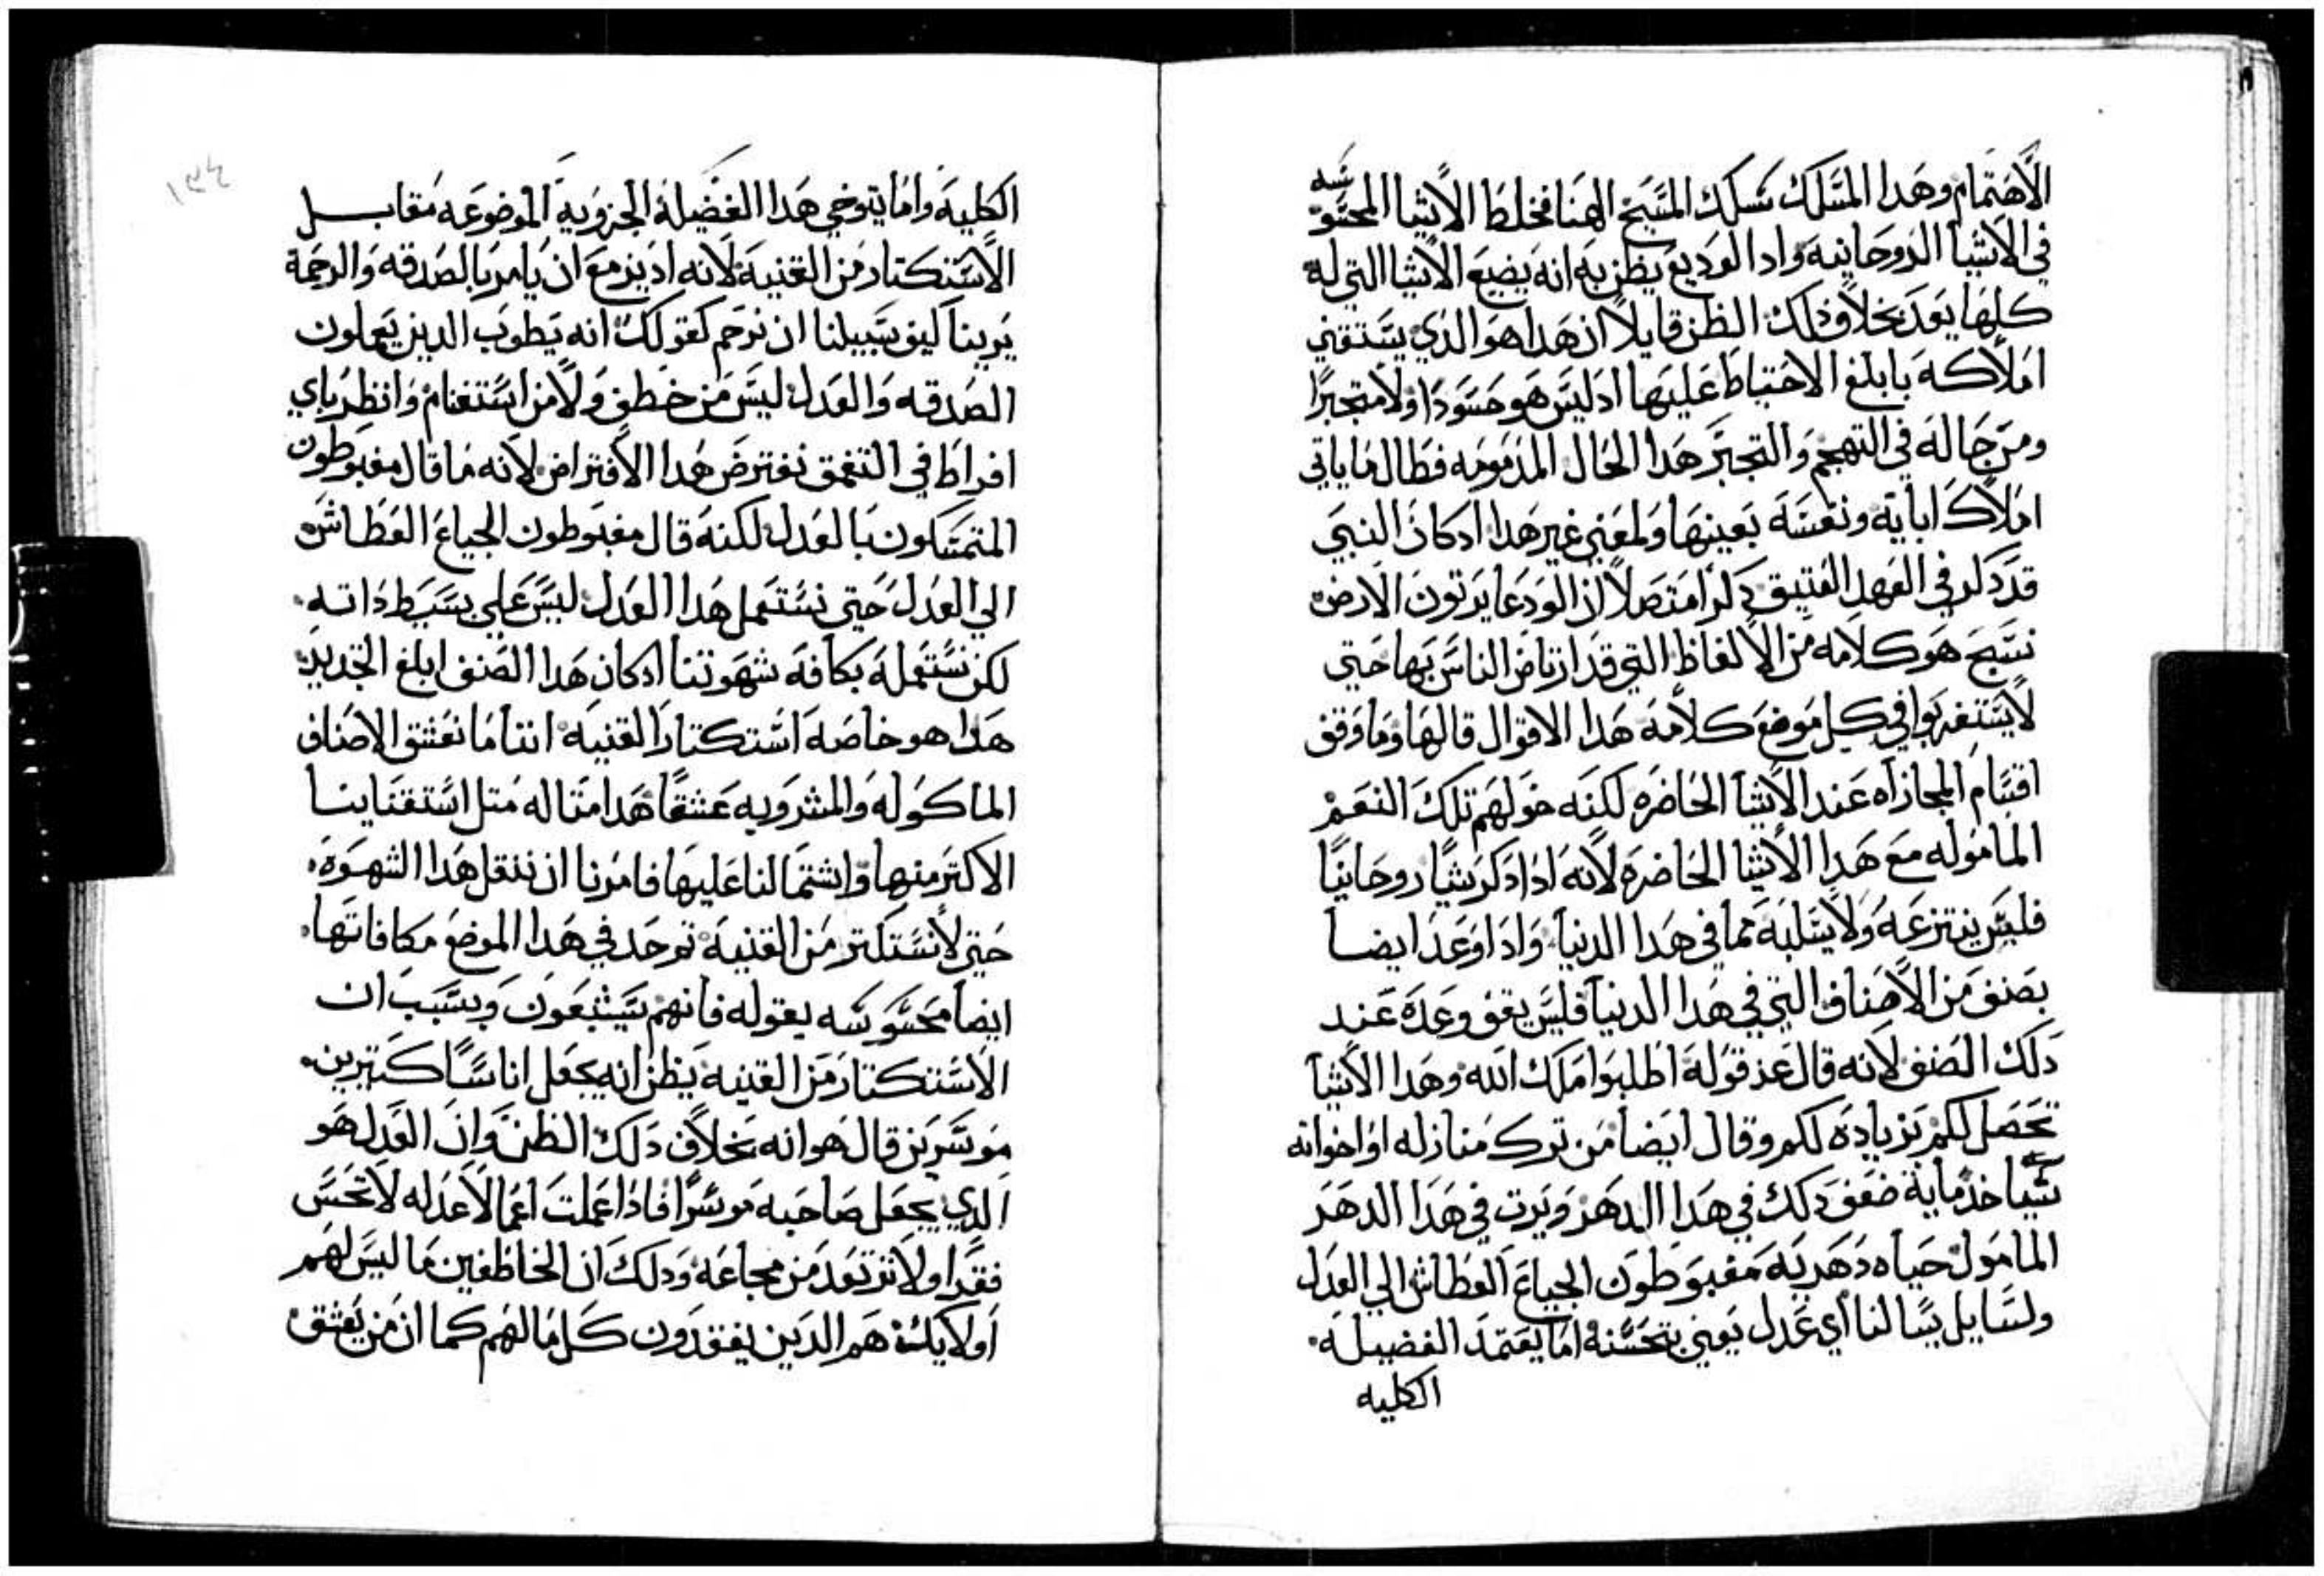 الاهتمام وهدا المسلك سلك المسيح الهنا فخلط الاشيا المحسوسه
في الاشيا الروحانيه واد الوديع يظن به انه يضيع الاشيا التي له
كلها يعد بخلاف ذلك الظن قايلا ان هدا هو الذي يستقني
املاكه بابلغ الاحتياط عليها ادليس هو حسودا ولا متجبرا
ومن حاله في التهجم والتجبر هدا الحال المدمومه فطال ما ياتي
املاك ابايه ونفسه بعينها ولمعني غير هدا ادكان النبي
قد دكر في العهد العتيق دكرا متصلا ان الودعا يرتون الارض
نسج هو كلامه من الالفاظ التي قد ارتاض الناس بها حتي
لا يستغربوا في كل موضع كلامه هدا الاقوال قالها وما وقف
اقسام المجازاه عند الاشيا الحاضره لكنه خولهم تلك النعم
المامولة مع هدا الاشيا الحاضره لانه ادا دكر شيا روحانيا
فليس ينتزعه ولا يسلبه مما في هدا الدنيا وادا وعد ايضا
بصنف من الاصناف التي في هدا الدنيا فليس يقف وعده عند
دلك الصنف لانه قال عند قوله اطلبوا ملك الله وهدا الاشيا
تحصل لكم بزياده لكم وقال ايضا من ترك منازله او اخوانه
سياخد مايه ضعف دلك في هدا الدهر ويرت في هدا الدهر
المامول حياه دهريه مغبوطون الجياع العطاش الي العدل
ولسايل يسالنا اي عدل يعني بتحسنه اما يعتمد الفضيله
الكليه
١٣٤
الكليه واما يتوخي هدا الفضيله الجزويه الموضوعه مقابل
الاستكتار من القنيه لانه ادىزمع ان يامر بالصدقه والرحمة
يرينا كيف سبيلنا ان نرحم كقولك انه يطوب الدين يعملون
الصدقه والعدل ليس من خطف ولا من استغنام وانظر باي
افراط في التعمق نفترض هدا الافتراض لانه ما قال مغبوطون
المتمسكون بالعدل لكنه قال مغبوطون الجياع العطاش
الي العدل حتي نستعمل هدا العدل ليس علي بسيط داته
لكن نستعمله بكافة شهوتنا ادكان هدا الصنف ابلغ التحديد
هدا هو خاصه استكتار القنيه اننا ما نعشق الاصناف
الماكوله والمشروبه عشقا هدا متاله متل استقناينا
الاكتر منها واشتمالنا عليها فامرنا ان ننقل هدا الشهوة
حتي لا نستكتر من القنيه توحد في هدا الموضع مكافاتها
ايضا محسوسه بقوله فانهم سيشبعون وبسبب ان
الاستكتار من القنيه يظن انه يجعل اناسا كتيرين
موسرين قال هو انه بخلاف دلك الظن وان العدل هو
الدي يجعل صاحبه موسرا فادا عملت اعمالا عدله لا تخس
فقرا ولا ترتعد من مجاعه ودلك ان الخاطفين ما ليس لهم
اولايك هم الدين يفقدون كل ما لهم كما ان من يعشق